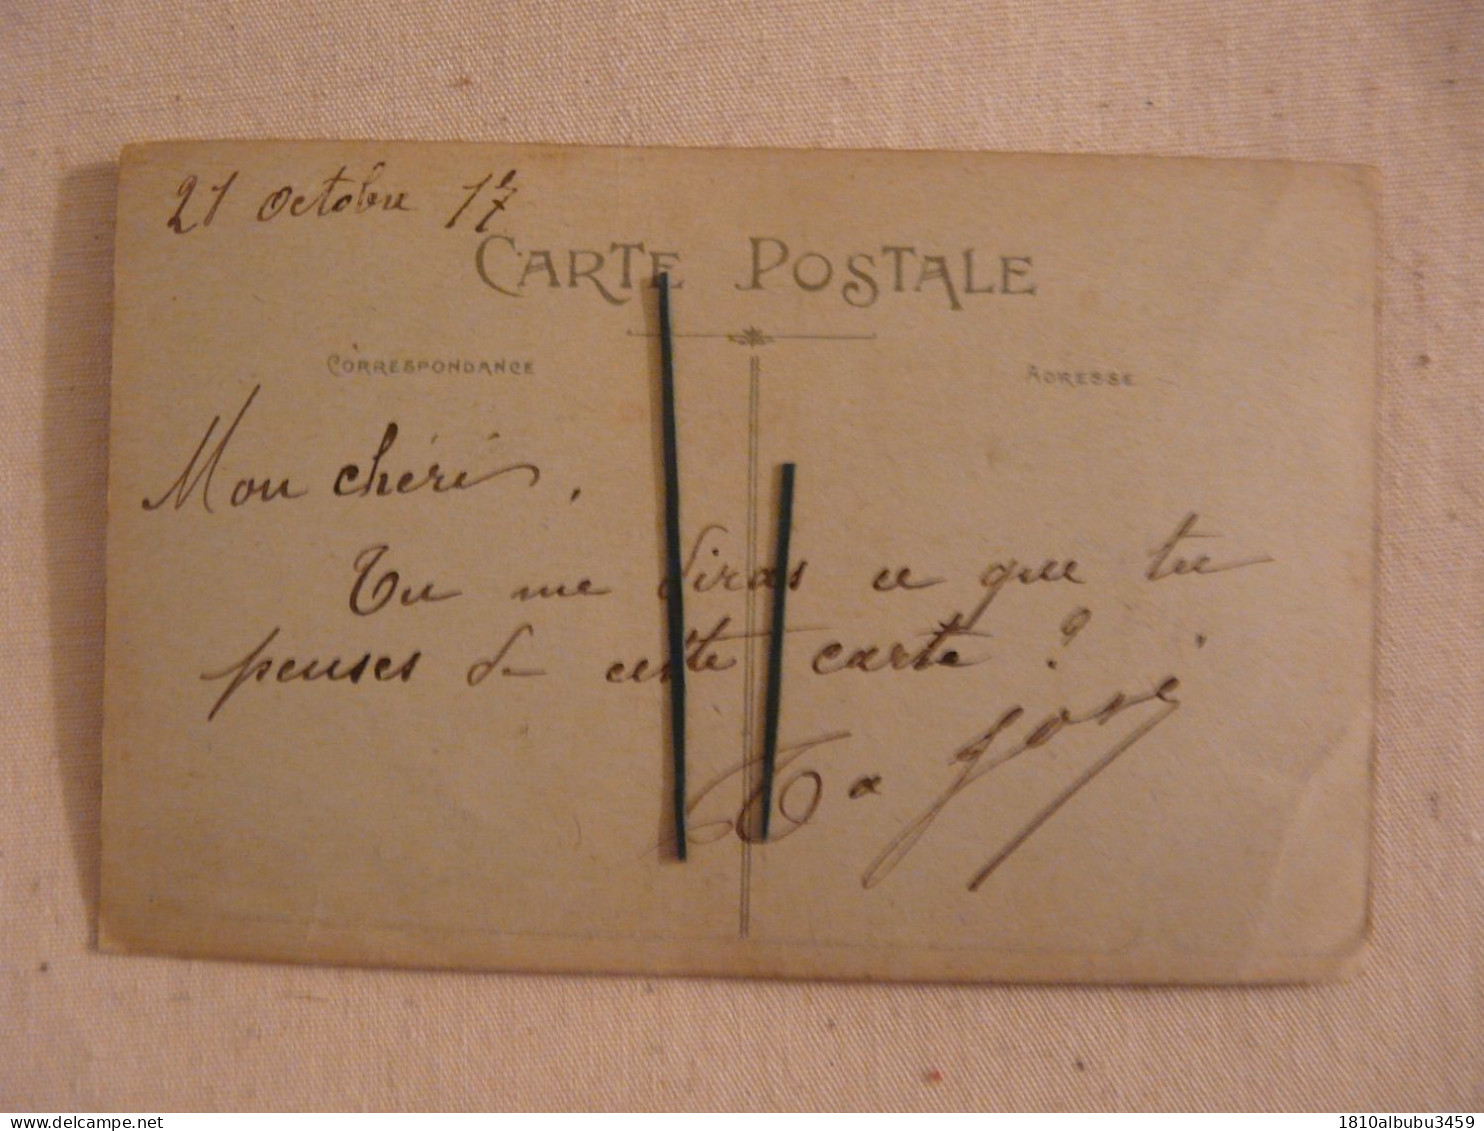 21 Octobre 17
CARTE POSTALE
CORRESPONDANCE
ADRESSE
Mon chéri,
Tu me diras ce que tu
penses de cette carte ?
Ta José
www.delcampe.net
1810albubu3459